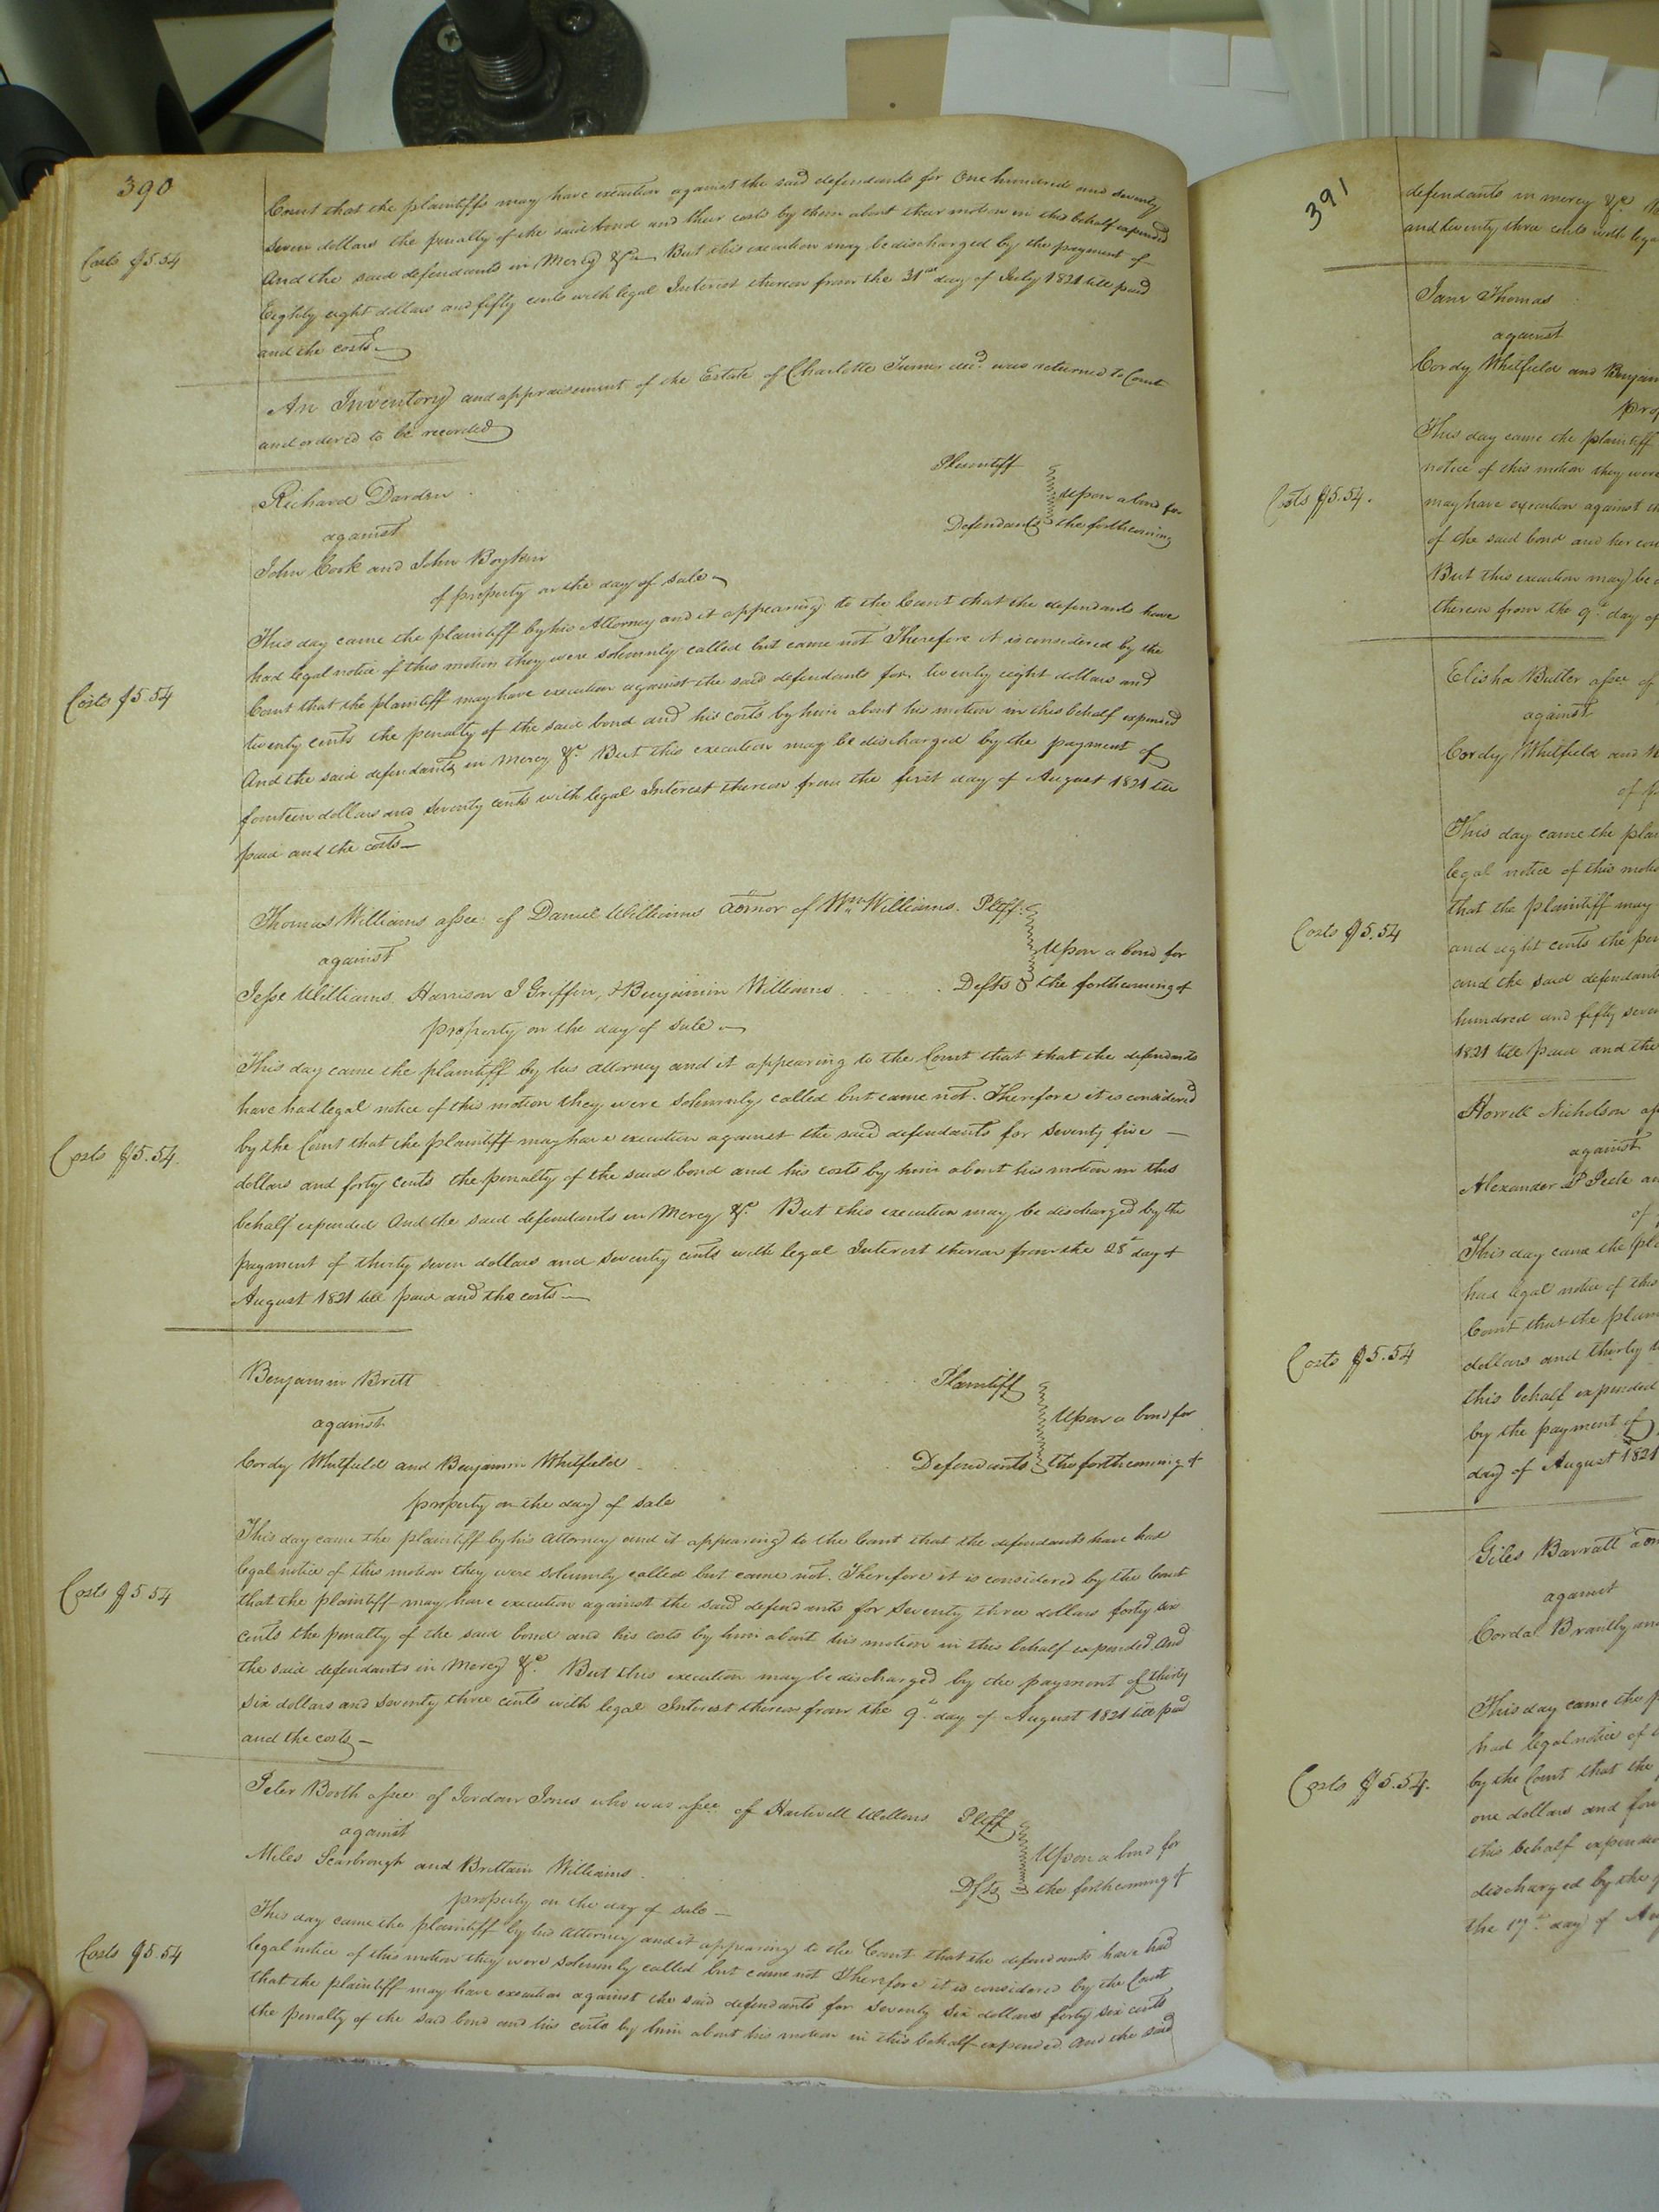 390
Court that the plaintiffs may have execution against the said defendants for One hundred and seventy
Costs $5.54
seven dollars the penalty of the said bond and their costs by them about their motion in this behalf expended
And the said defendants in Mercy &c. But this execution may be discharged by the payment of
Eighty eight dollars and fifty cents with legal Interest thereon from the 31st day of July 1821 till paid
and the costs
An Inventory and appraisement of the Estate of Charlotte Turner decd. was returned to Court
and ordered to be recorded
Richard Darden Plaintiff
against upon a bond for
John Cook and John Boykin Defendants the forthcoming
of property on the day of sale
This day came the plaintiff by his Attorney and it appearing to the Court that the defendants have
had legal notice of this motion they were solemnly called but came not Therefore it is considered by the
Costs $5.54
Court that the plaintiff may have execution against the said defendants for twenty eight dollars and
twenty cents the penalty of the said bond and his costs by him about his motion in this behalf expended
And the said defendants in mercy &c. But this execution may be discharged by the payment of
fourteen dollars and seventy cents with legal Interest thereon from the first day of August 1821 till
paid and the costs
Thomas Williams assee. of Daniel Williams admor of Wm Williams. Pltff.
against Upon a bond for
Jesse Williams, Harrison J Griffin, & Benjamin Williams Defts the forthcoming of
property on the day of sale
This day came the plaintiff by his attorney and it appearing to the Court that that the defendants
have had legal notice of this motion they were solemnly called but came not. Therefore it is considered
Costs $5.54.
by the Court that the plaintiff may have execution against the said defendants for seventy five
dollars and forty cents the penalty of the said bond and his costs by him about his motion in this
behalf expended And the said defendants in Mercy &c. But this execution may be discharged by the
payment of thirty seven dollars and seventy cents with legal Interest thereon from the 28th day of
August 1821 till paid and the costs
Benjamin Britt Plaintiff
against Upon a bond for
Cordy Whitfield and Benjamin Whitfield Defendants the forthcoming of
property on the day of sale
This day came the plaintiff by his Attorney and it appearing to the Court that the defendants have had
legal notice of this motion they were solemnly called but came not. Therefore it is considered by the Court
Costs $5.54
that the plaintiff may have execution against the said defendants for seventy three dollars forty six
cents the penalty of the said bond and his costs by him about his motion in this behalf expended And
the said defendants in Mercy &c. But this execution may be discharged by the payment of thirty
six dollars and seventy three cents with legal Interest thereon from the 9th day of August 1821 till paid
and the costs
Peter Booth assee of Jordan Jones who was assee of Hartwell Wellons Pltff
against Upon a bond for
Miles Scarbrough and Brittain Williams Dfts the forthcoming of
property on the day of sale
This day came the plaintiff by his Attorney and it appearing to the Court that the defendants have had
Costs $5.54
legal notice of this motion they were solemnly called but came not Therefore it is considered by the Court
that the plaintiff may have execution against the said defendants for seventy six dollars forty six cents
the penalty of the said bond and his costs by him about his motion in this behalf expended. And the said
391
defendants in mercy &c.
and twenty three cents with legal
Jane Thomas
against
Cordy Whitfield and Benjamin
This day came the plaintiff
notice of this motion they were
Costs $5.54.
may have execution against
of the said bond and her
But this execution may be
thereon from the 9th day of
Elisha Butler assee of
against
Cordy Whitfield and
of
This day came the
legal notice of this
that the plaintiff may
Costs $5.54
and eight cents the
and the said
hundred and fifty seven
1821 till paid and the
Howell Nicholson
against
Alexander P Peele
of
This day came the
had legal notice of this
Court that the
Costs $5.54
dollars and thirty
this behalf expended
by the payment of
day of August 1821
Giles Barratt
against
Cordal Brantly
This day came the
had legal notice of
Costs $5.54.
by the Court that the
one dollars and
this behalf expended
discharged by the
the 17th day of